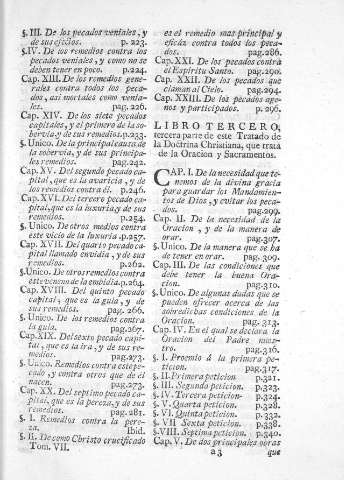 §. III. De los pecados veniales, y
de sus efectos. p. 223.
§. IV. De los remedios contra los
pecados veniales, y como no se
deben tener en poco. p. 224.
Cap. XIII. De los remedios gene-
rales contra todos los peca-
dos, asi mortales como venia-
les. pag. 226.
Cap. XIV. De los siete pecados
capitales, y el primero de la so-
bervia, y de sus remedios. p. 233.
§. Unico. De la principal causa de
la sobervia, y de sus principa-
les remedios. pag. 242.
Cap. XV. Del segundo pecado ca-
pital, que es la avaricia, y de
los remedios contra él. p. 246.
Cap. XVI. Del tercero pecado ca-
pital, que es la luxuria, y de sus
remedios. p. 254.
§. Unico. De otros medios contra
este vicio de la luxuria. p. 257.
Cap. XVII. Del quarto pecado ca-
pital llamado envidia, y de sus
remedios. p. 262.
§. Unico. De otros remedios contra
este veneno de la embidia. p. 264.
Cap. XVIII. Del quinto pecado
capital, que es la gula, y de
sus remedios. pag. 266.
§. Unico. De los remedios contra
la gula. pag. 267.
Cap. XIX. Del sexto pecado capi-
tal, que es la ira, y de sus re-
medios. pag. 273.
§. Unico. Remedios contra este pe-
cado, y contra otros que de él
nacen. pag. 273.
Cap. XX. Del septimo pecado ca-
pital, que es la pereza, y de sus
remedios. pag. 281.
§. I. Remedios contra la pere-
za. Ibid.
§. II. De como Christo crucificado
Tom. VII.
es el remedio mas principal y
eficáz contra todos los peca-
dos. pag. 286.
Cap. XXI. De los pecados contra
el Espiritu Santo. pag. 290.
Cap. XXII. De los pecados que
claman al Cielo. pag. 294.
Cap. XXIII. De los pecados age-
nos y participados. p. 296.
LIBRO TERCERO,
tercera parte de este Tratado de
la Doctrina Christiana, que trata
de la Oracion y Sacramentos.
CAP. I. De la necesidad que te-
nemos de la divina gracia
para guardar los Mandamien-
tos de Dios, y evitar los peca-
dos. pag. 299.
Cap. II. De la necesidad de la
Oracion, y de la manera de
orar. pag. 307.
§. Unico. De la manera que se ha
de tener en orar. pag. 309.
Cap. III. De las condiciones que
debe tener la buena Ora-
cion. pag. 310.
§. Unico. De algunas dudas que se
pueden ofrecer acerca de las
sobredichas condiciones de la
Oracion. pag. 313.
Cap. IV. En el qual se declara la
Oracion del Padre nues-
tro. pag. 316.
§. I. Proemio á la primera pe-
ticion. pag. 317.
§. II. Primera peticion p. 321.
§. III. Segunda peticion. p. 323.
§. IV. Tercera peticion. p. 324.
§. V. Quarta peticion. p. 328.
§. VI. Quinta peticion. p. 332.
§. VII Sexta peticion. p. 338.
§. VIII. Septima peticion. p. 340.
Cap. V. De dos principales obras
a 3 que